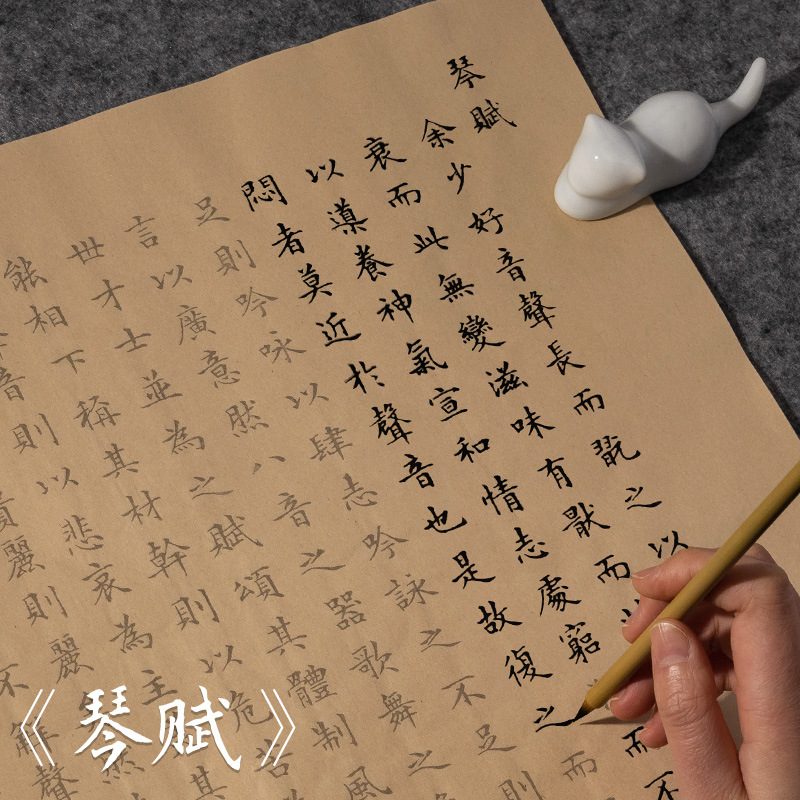 琴賦
余少好音聲長而翫之以
衰而此無變滋味有猒而
以導養神氣宣和情志處窮而不
悶者莫近於聲音也是故復之而
足則吟咏以肆志吟詠之不足則
言以廣意然八音之器歌舞之
世才士並為之賦頌其體制風
能相下稱其材幹則以危苦
音則以悲哀為主其
麗則麗然
不解聲
《琴赋》